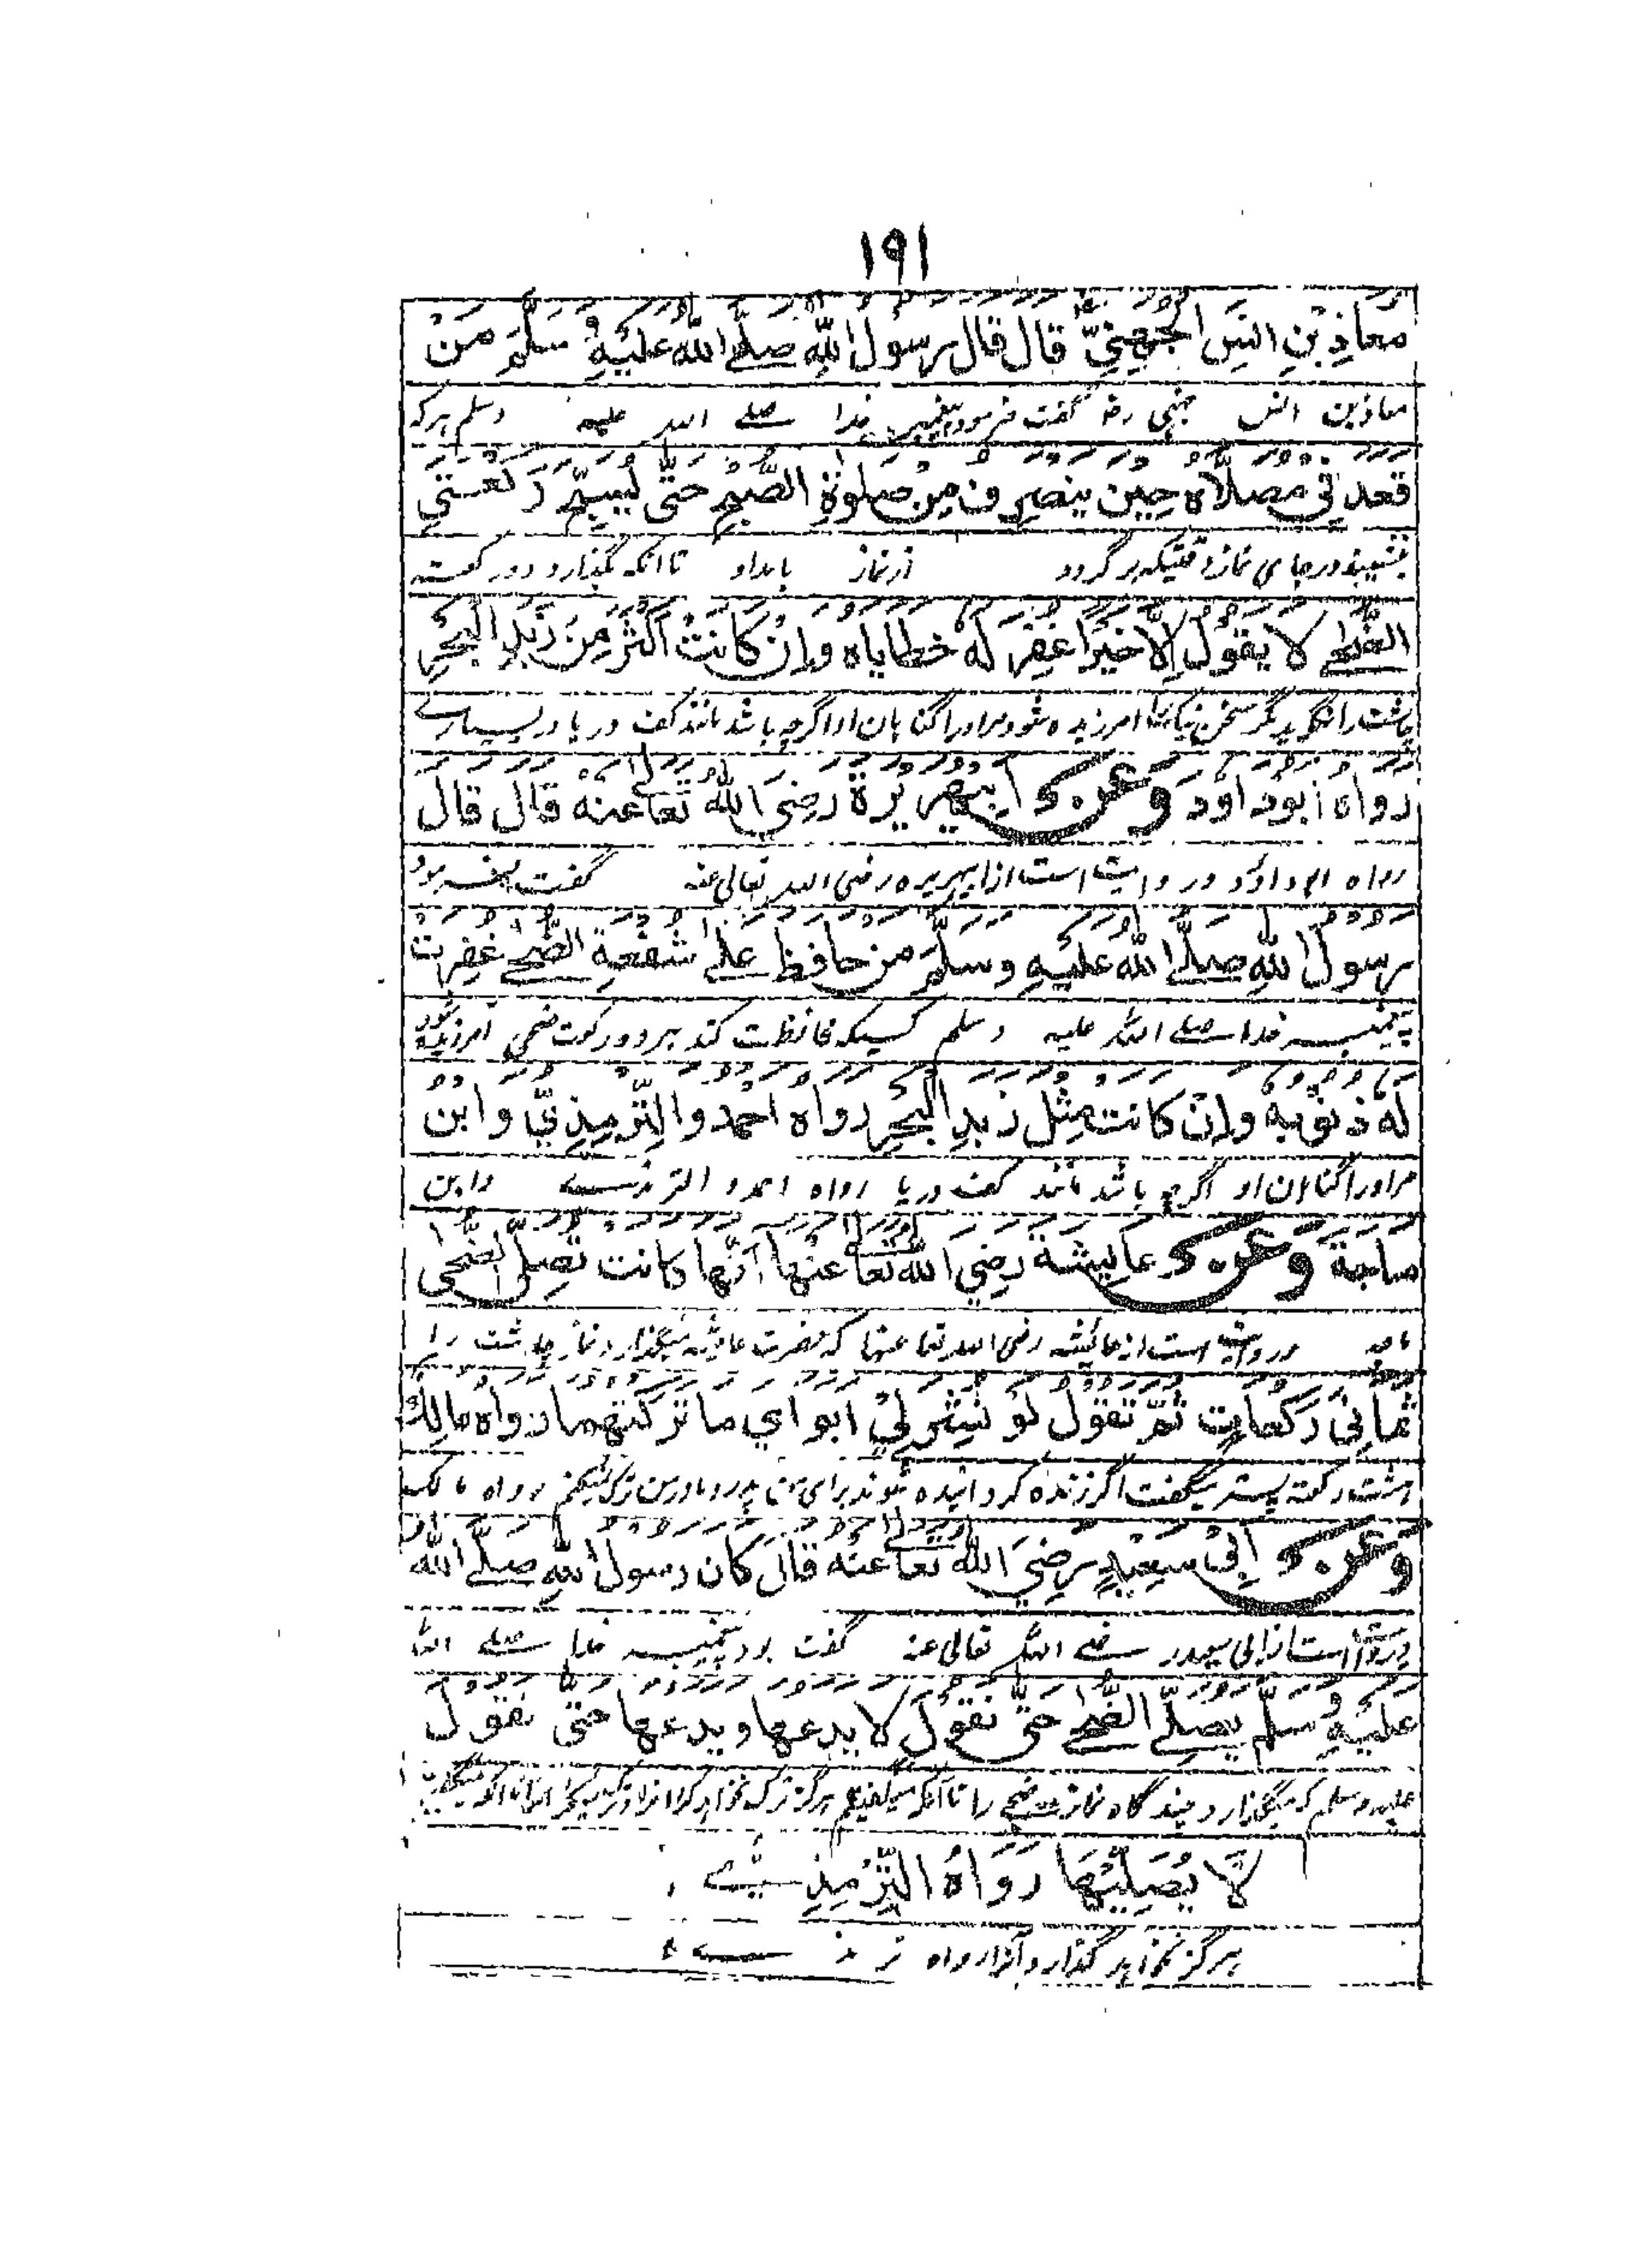 ١٩١
مَعاذِ بْنِ انَسِ الجُهَنِيِّ قال قال رسول اللّهِ صلے اللّه عليهِ وسلّم مَنْ
معاذ بن انس جهنی رضه گفت فرمود پیغمبر خدا صلے الله علیه وسلم هر که
قعد في مصلاّه حِين ينصرِف مِن صلوةِ الصّبح حتّى يُسبِّح رَكعتي
بنشیند در جای نماز وقتیکه برگردد از نماز بامداد تا آنکه بگذارد دو رکعت
الضّحٰے لا يقول اِلّا خيرًا غفر لَهُ خطاياه وَاِنْ كانتْ اكثرَ مِنْ زَبَدِ البَحْرِ
چاشت را نگوید مگر سخن نیک آمرزیده شود مر او را گناهان او اگرچه باشد مانند کف دریا در بسیاری
رواه ابوداود وَعَنْ ابي هريرة رضِيَ اللّه تعالےٰ عنه قال قال
رواه ابو داود و روایت است از ابی هریره رضی الله تعالی عنه گفت فرمود
رسول اللّهِ صلّے اللّه عليهِ وسلّم من حافظ علےٰ شفعةِ الضّحےٰ غفِرت
پیغمبر خدا صلے الله علیه وسلم کسیکه محافظت کند بر دو رکعت ضحی آمرزیده شود
لَهُ ذنوبهُ وإن كانت مِثل زبدِ البَحْرِ رواه احمد والتِّرْمِذِيّ وابْن
مر او را گناهان او اگرچه باشد مانند کف دریا رواه احمد و الترمذے وابن
ماجة وَعَنْ عايشة رضِيَ اللّه تعالےٰ عنها انّها كانت تصلّي الضّحى
ماجه و روایت است از عائشه رضی الله تعا عنها که حضرت عائشه میگذارد نماز چاشت را
ثماني ركعاتٍ ثمّ تقول لَو نشِر لِيْ ابواي ما تركتهما رواه مالك
هشت رکعت پستر میگفت اگر زنده گردانیده شوند برای من پدر و مادر من ترک نمیکنم رواه مالک
وَعَنْ اَبِيْ سعيدٍ رضِيَ اللّه تعالےٰ عنه قالَ كان رسول اللّهِ صلّے اللّه
و روایت است از ابی سعید رضے الله تعالی عنه گفت بود پیغمبر خدا صلے الله
عليهِ وسلّم يصلّي الضّحےٰ حتّى نقول لا يدعها ويدعها حتّى نقول
علیه وسلم که میگذارد چند گاه نماز ضحے را تا آنکه میگفتیم هرگز ترک نخواهد کرد آنرا و ترک میکرد آنرا تا آنکه میگفتیم
لَا يُصَلِّيْهَا رَوَاهُ التِّرْمِذِيّے
هرگز نخواهد گذارد آنرا رواه ترمذے